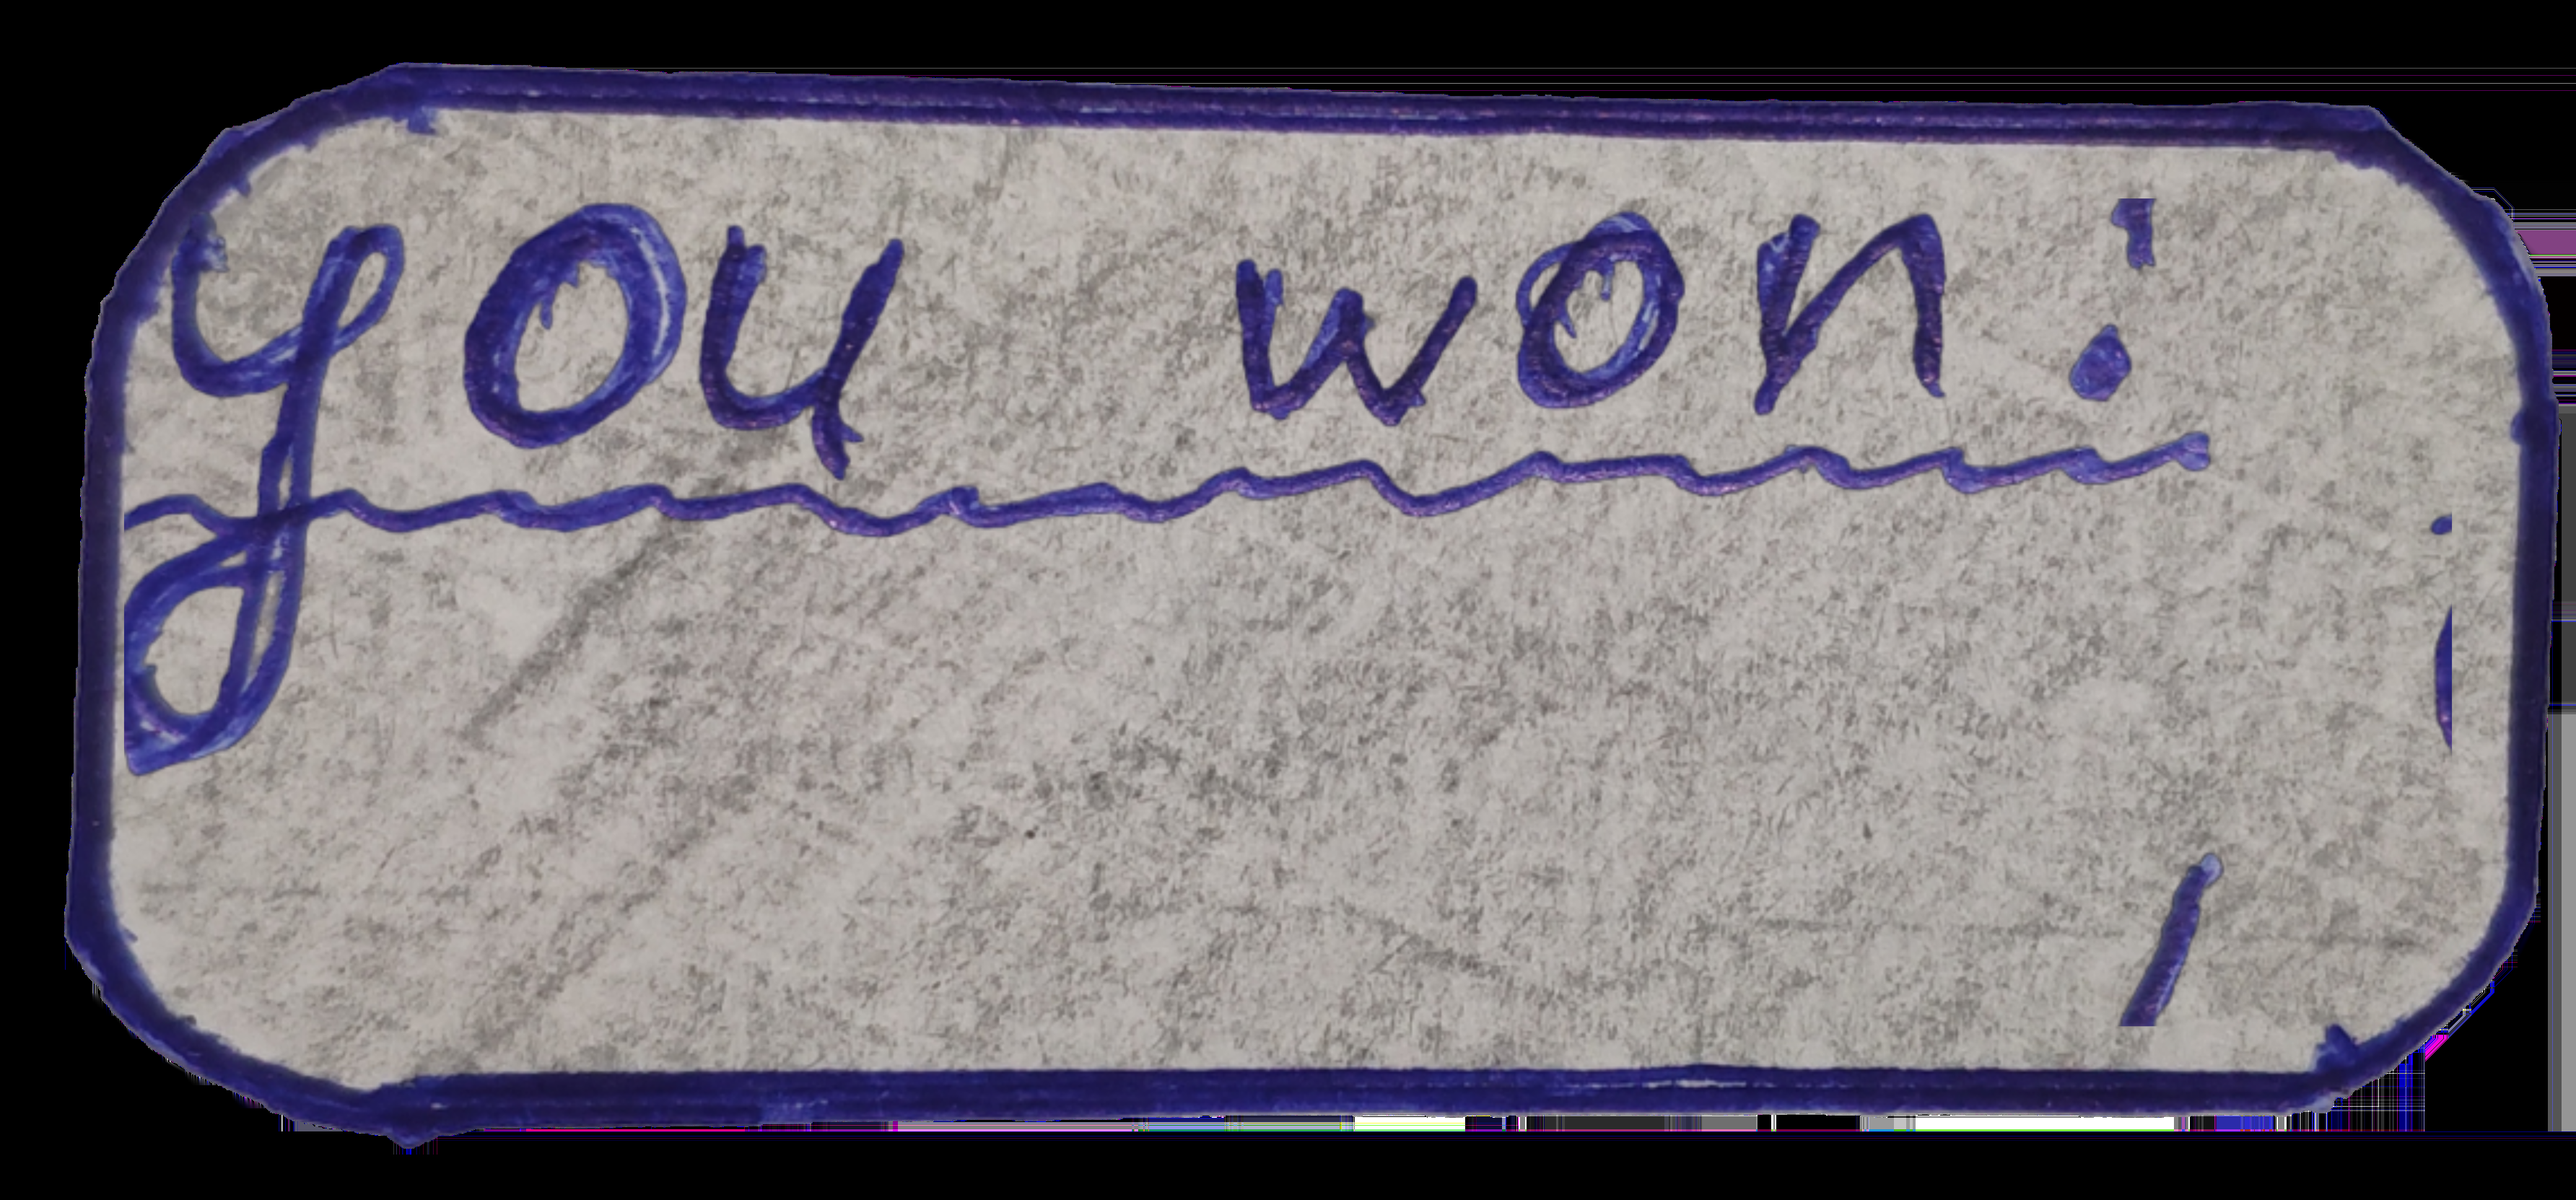 you won!